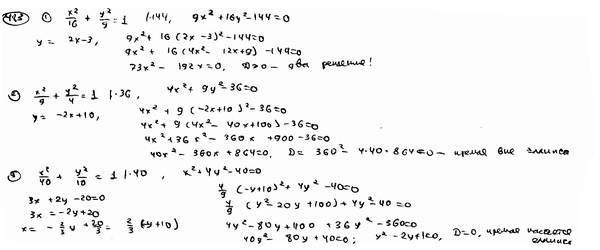 483 ① x²/16 + y²/9 = 1 |·144, 9x²+16y²-144=0
y = 2x-3, 9x²+16(2x-3)²-144=0
9x²+16(4x²-12x+9)-144=0
73x²-192x=0, D>0 - два решения!
② x²/9 + y²/4 = 1 |·36, 4x²+9y²-36=0
y = -2x+10, 4x²+9(-2x+10)²-36=0
4x²+9(4x²-40x+100)-36=0
4x²+36x²-360x+900-36=0
40x²-360x+864=0, D=360²-4·40·864<0 - прямая вне эллипса
③ x²/40 + y²/10 = 1 |·40, x²+4y²-40=0
3x+2y-20=0 4/9(-y+10)²+4y²-40=0
3x=-2y+20 4/9(y²-20y+100)+4y²-40=0
x= -2/3y+20/3= 2/3(-y+10) 4y²-80y+400+36y²-360=0
40y²-80y+40=0; y²-2y+1=0, D=0, прямая касается
эллипса